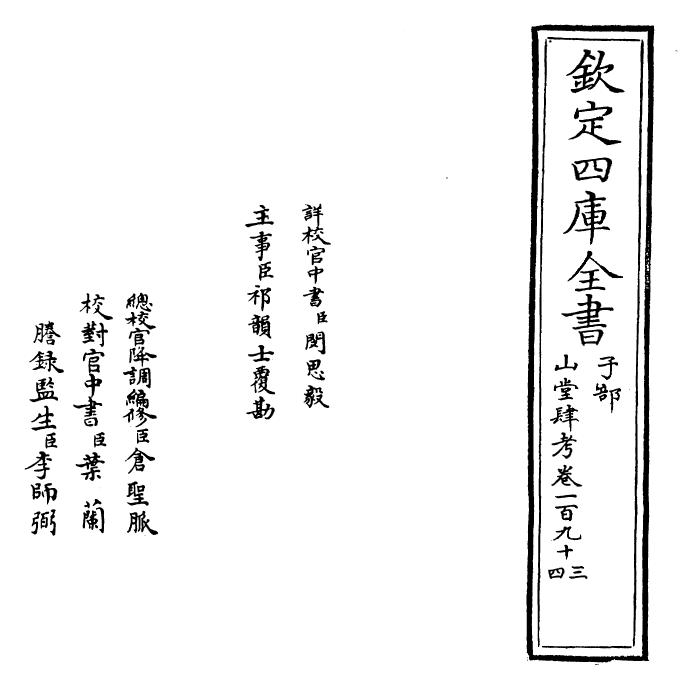 欽定四庫全書
子部
山堂肆考卷一百九十三四
詳校官中書臣閔思毅
主事臣祁韻士覆勘
總校官降調編修臣倉聖脈
校對官中書臣葉蘭
謄錄監生臣李師弼